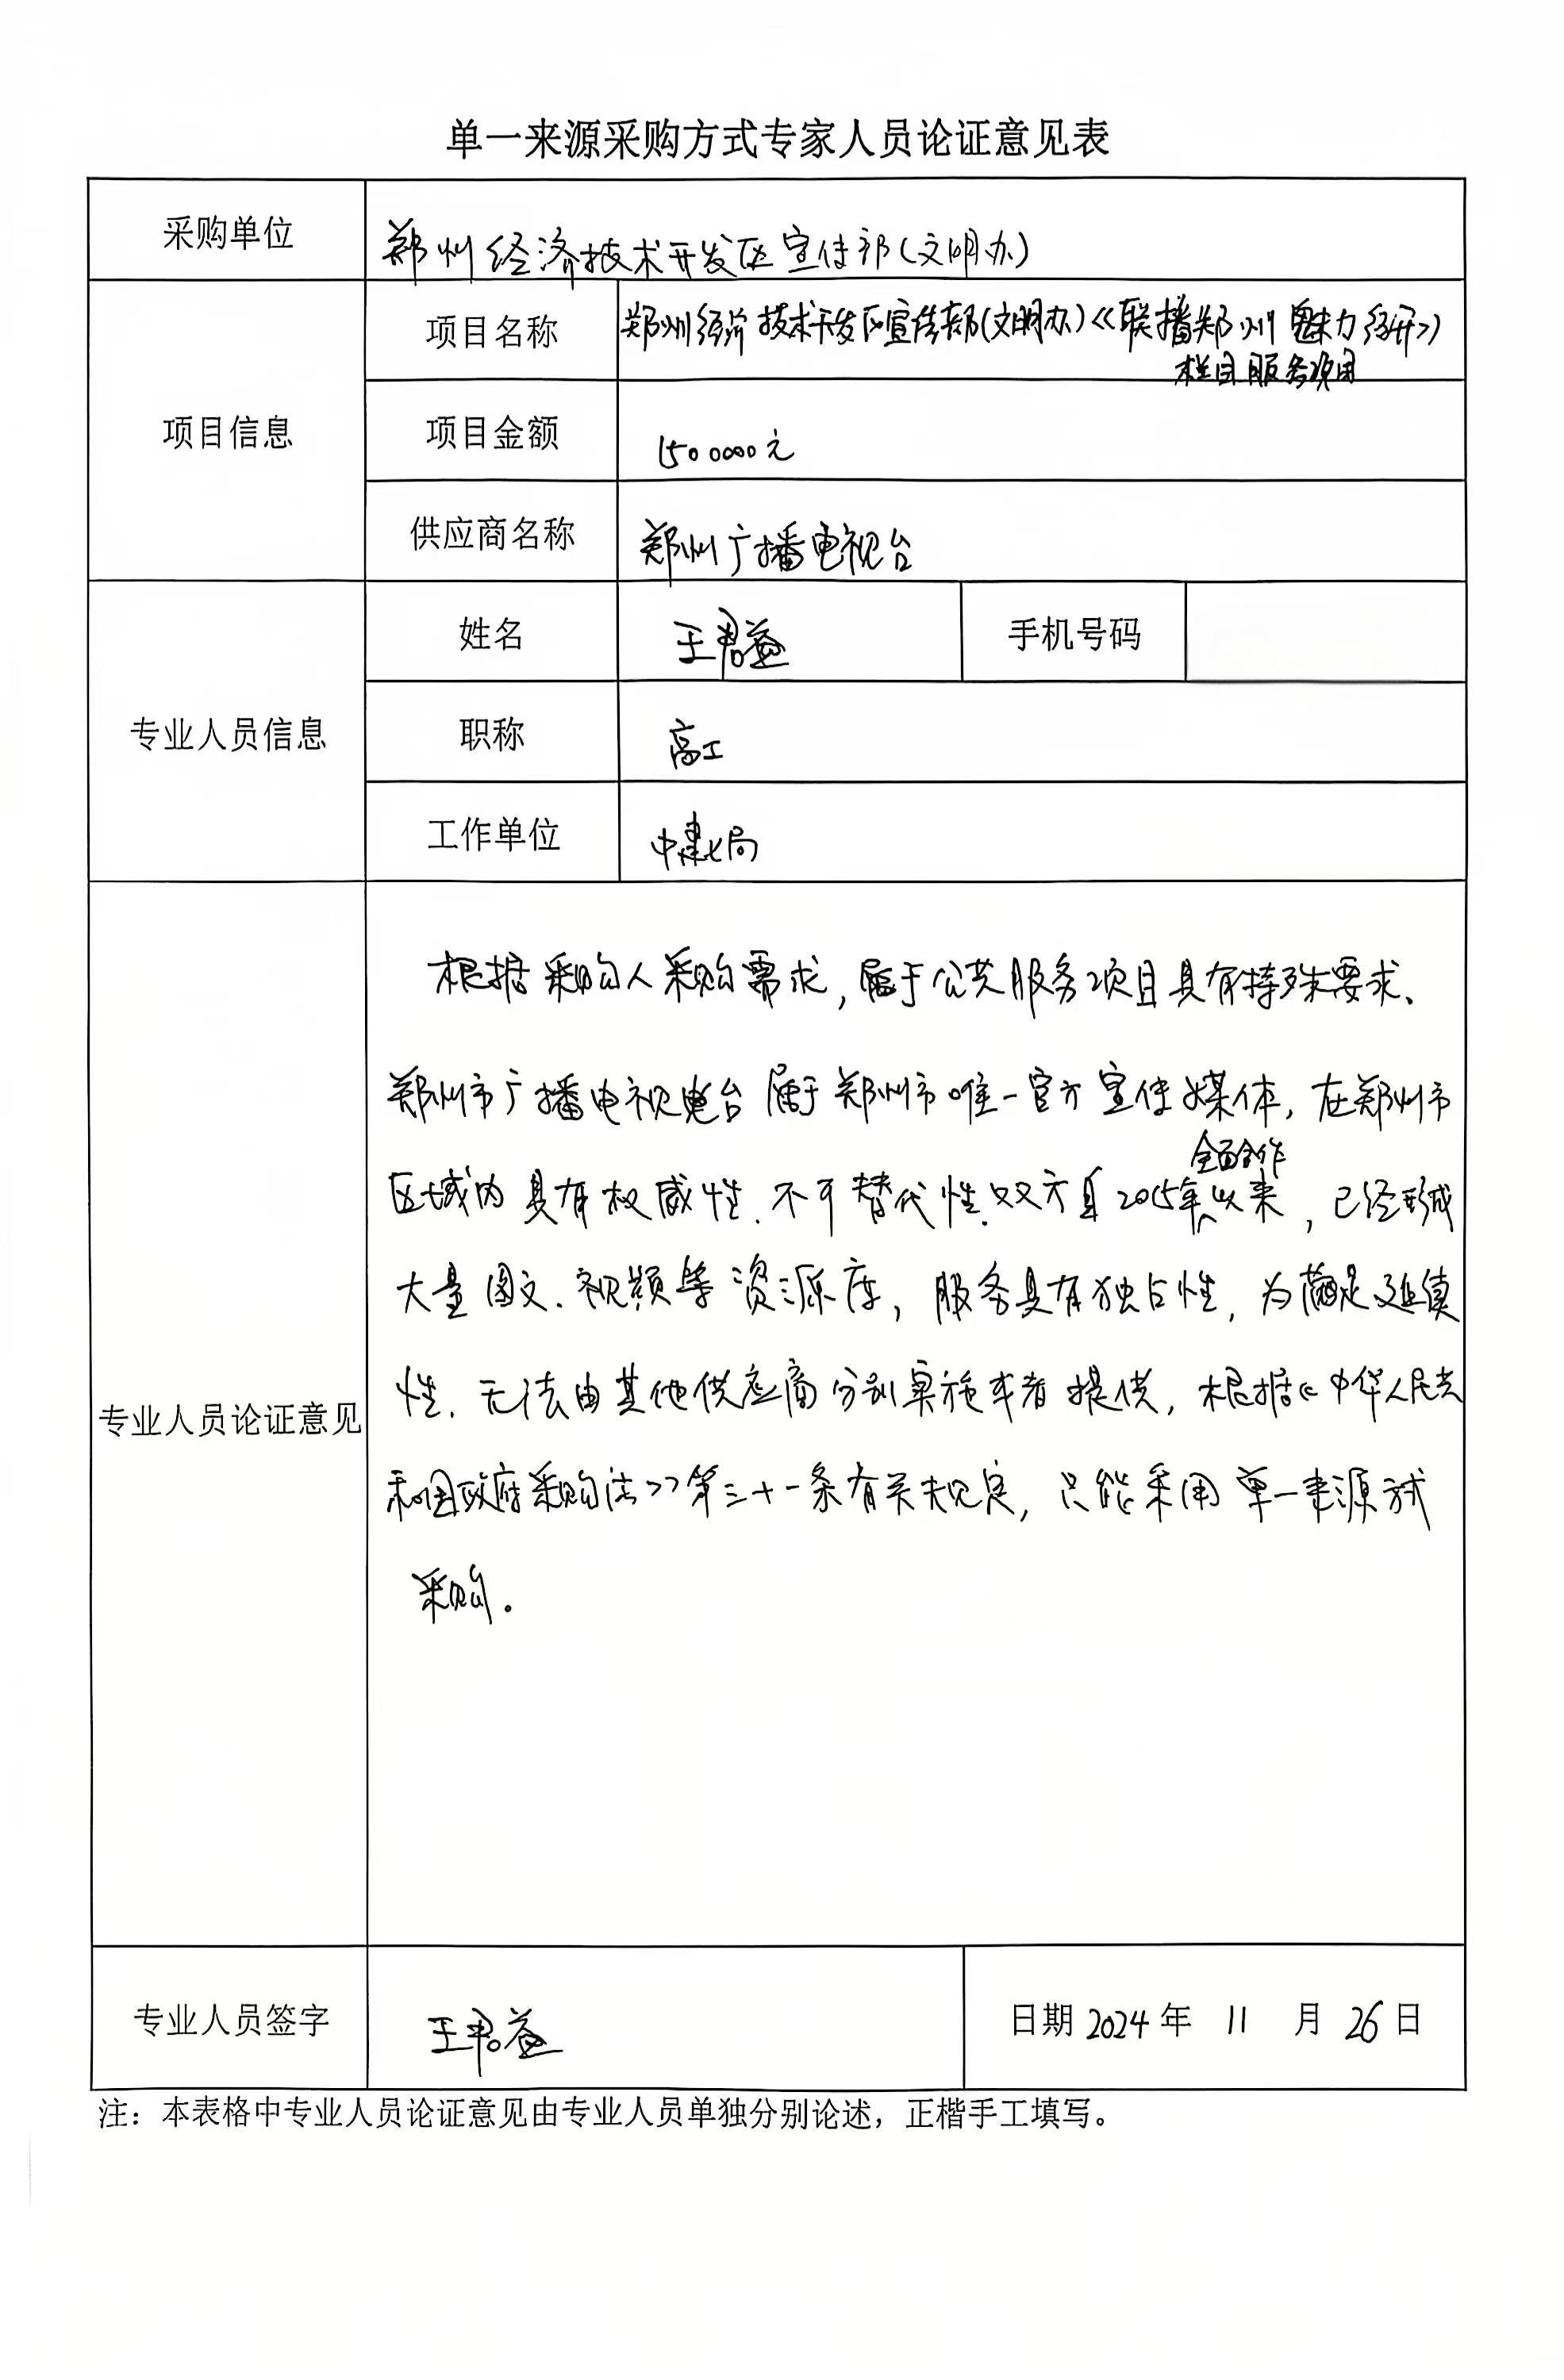 单一来源采购方式专家人员论证意见表
采购单位
郑州经济技术开发区宣传部(文明办)
项目信息
项目名称
郑州经济技术开发区宣传部(文明办)《联播郑州 魅力经开》
栏目服务项目
项目金额
1500000元
供应商名称
郑州广播电视台
专业人员信息
姓名
王君益
手机号码
职称
高工
工作单位
中建七局
专业人员论证意见
根据采购人采购需求,属于公共服务项目具有特殊要求、
郑州市广播电视台属于郑州市唯一官方宣传媒体,在郑州市
全面合作
区域内具有权威性、不可替代性、双方自2015年以来,已经形成
大量图文、视频等资源库,服务具有独占性,为满足延续
性、无法由其他供应商分别实施或者提供,根据《中华人民共
和国政府采购法》第三十一条有关规定,只能采用单一来源方式
采购。
专业人员签字
王君益
日期 2024 年 11 月 26 日
注：本表格中专业人员论证意见由专业人员单独分别论述，正楷手工填写。